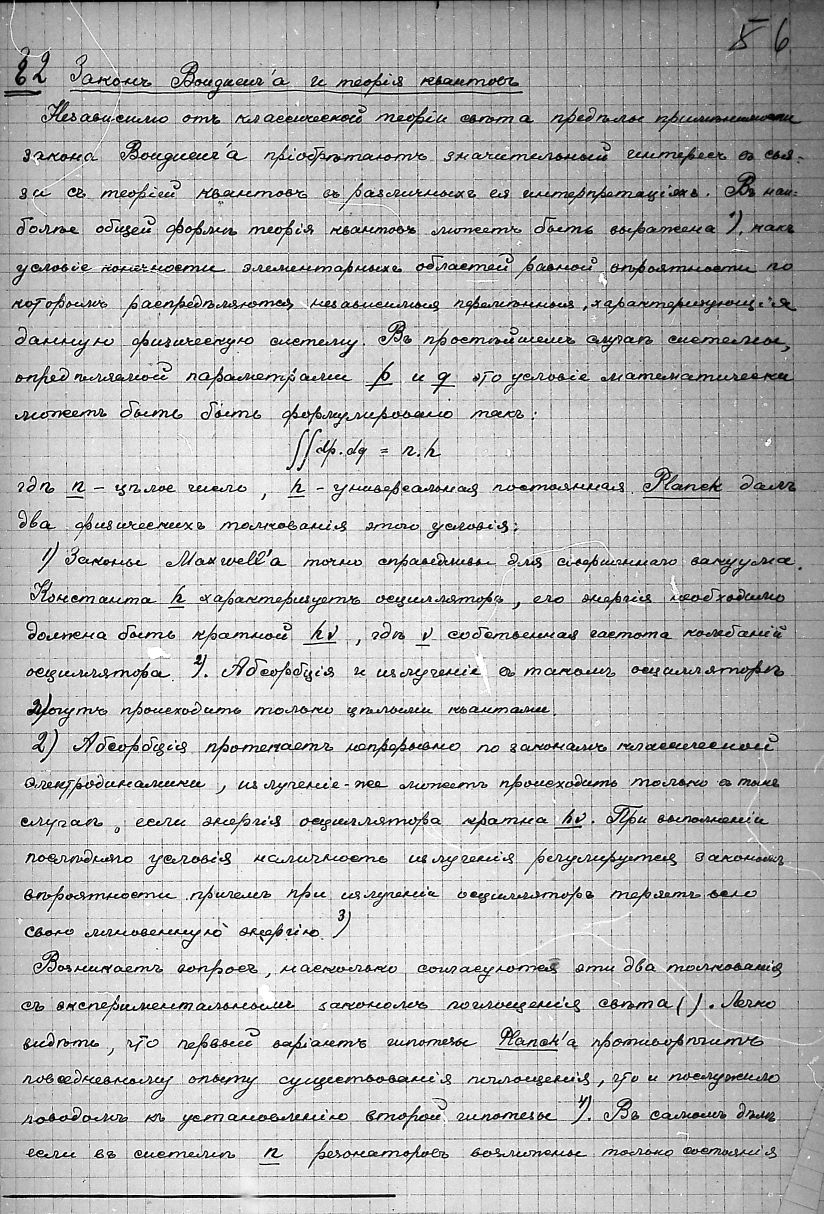 6
§2 Законъ Bouguer'а и теорія квантовъ
Независимо отъ классической теоріи свѣта предѣлы примѣнимости
закона Bouguer'а пріобрѣтаютъ значительный интересъ въ свя-
зи съ теоріей квантовъ въ различныхъ ея интерпретаціяхъ. Въ наи-
болѣе общей формѣ теорія квантовъ можетъ быть выражена 1), какъ
условіе конечности элементарныхъ областей равной вѣроятности по
которымъ распредѣляются независимыя перемѣнныя, характеризующія
данную физическую систему. Въ простѣйшемъ случаѣ системы,
опредѣляемой параметрами p и q это условіе математически
можетъ быть быть формулировано такъ:
∬ dp·dq = n.h
гдѣ n – цѣлое число, h – универсальная постоянная. Planck далъ
два физическихъ толкованія этого условія:
1) Законы Maxwell'а точно справедливы для совершеннаго вакуума.
Константа h характеризуетъ осцилляторъ, его энергія необходимо
должна быть кратной hν, гдѣ ν собственная частота колебаній
осциллятора 2). Абсорбція и излученіе въ такомъ осцилляторѣ
могутъ происходить только цѣлыми квантами.
2) Абсорбція протекаетъ непрерывно по законамъ классической
электродинамики, излученіе-же можетъ происходить только въ томъ
случаѣ, если энергія осциллятора кратна hν. При выполненіи
послѣдняго условія наличность излученія регулируется закономъ
вѣроятности причемъ при излученіи осцилляторъ теряетъ всю
свою мгновенную энергію 3)
Возникаетъ вопросъ, насколько согласуются эти два толкованія
съ экспериментальнымъ закономъ поглощенія свѣта ( ). Легко
видѣть, что первый варіантъ гипотезы Planck'а противорѣчитъ
повседневному опыту существованія поглощенія, что и послужило
поводомъ къ установленію второй гипотезы 4). Въ самомъ дѣлѣ
если въ системѣ n резонаторовъ возможны только состоянія